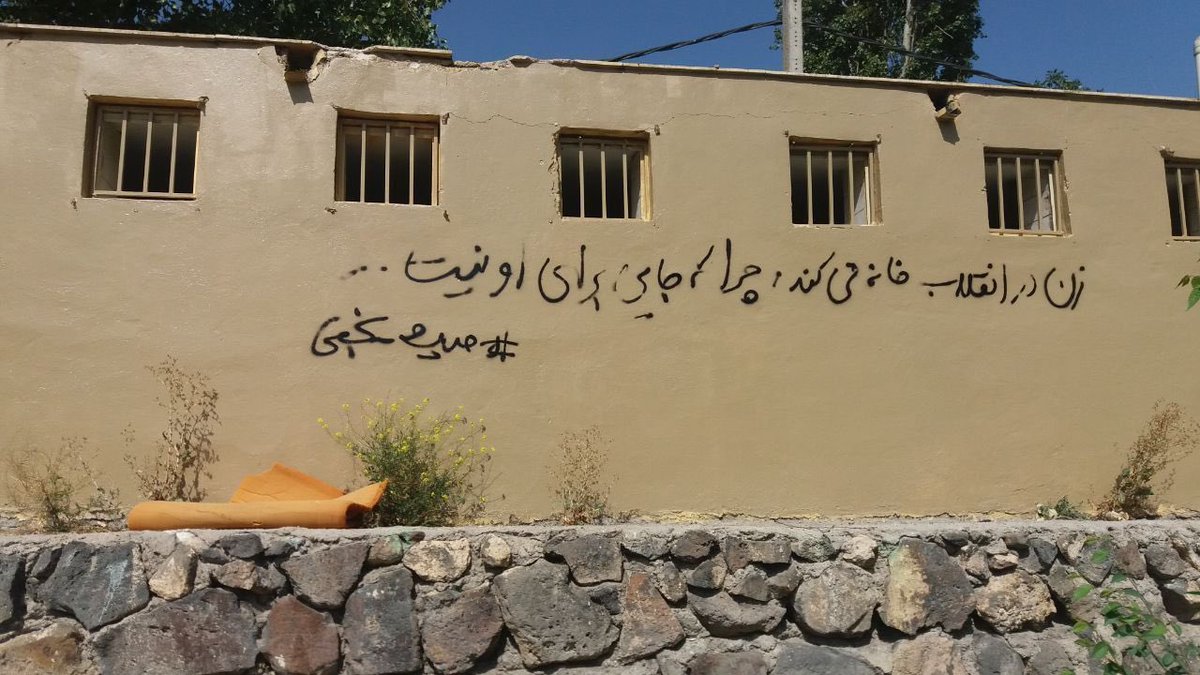 زن در انقلاب خانه می کند، چرا که جایی برای او نیست ...
#حدیث نجفی